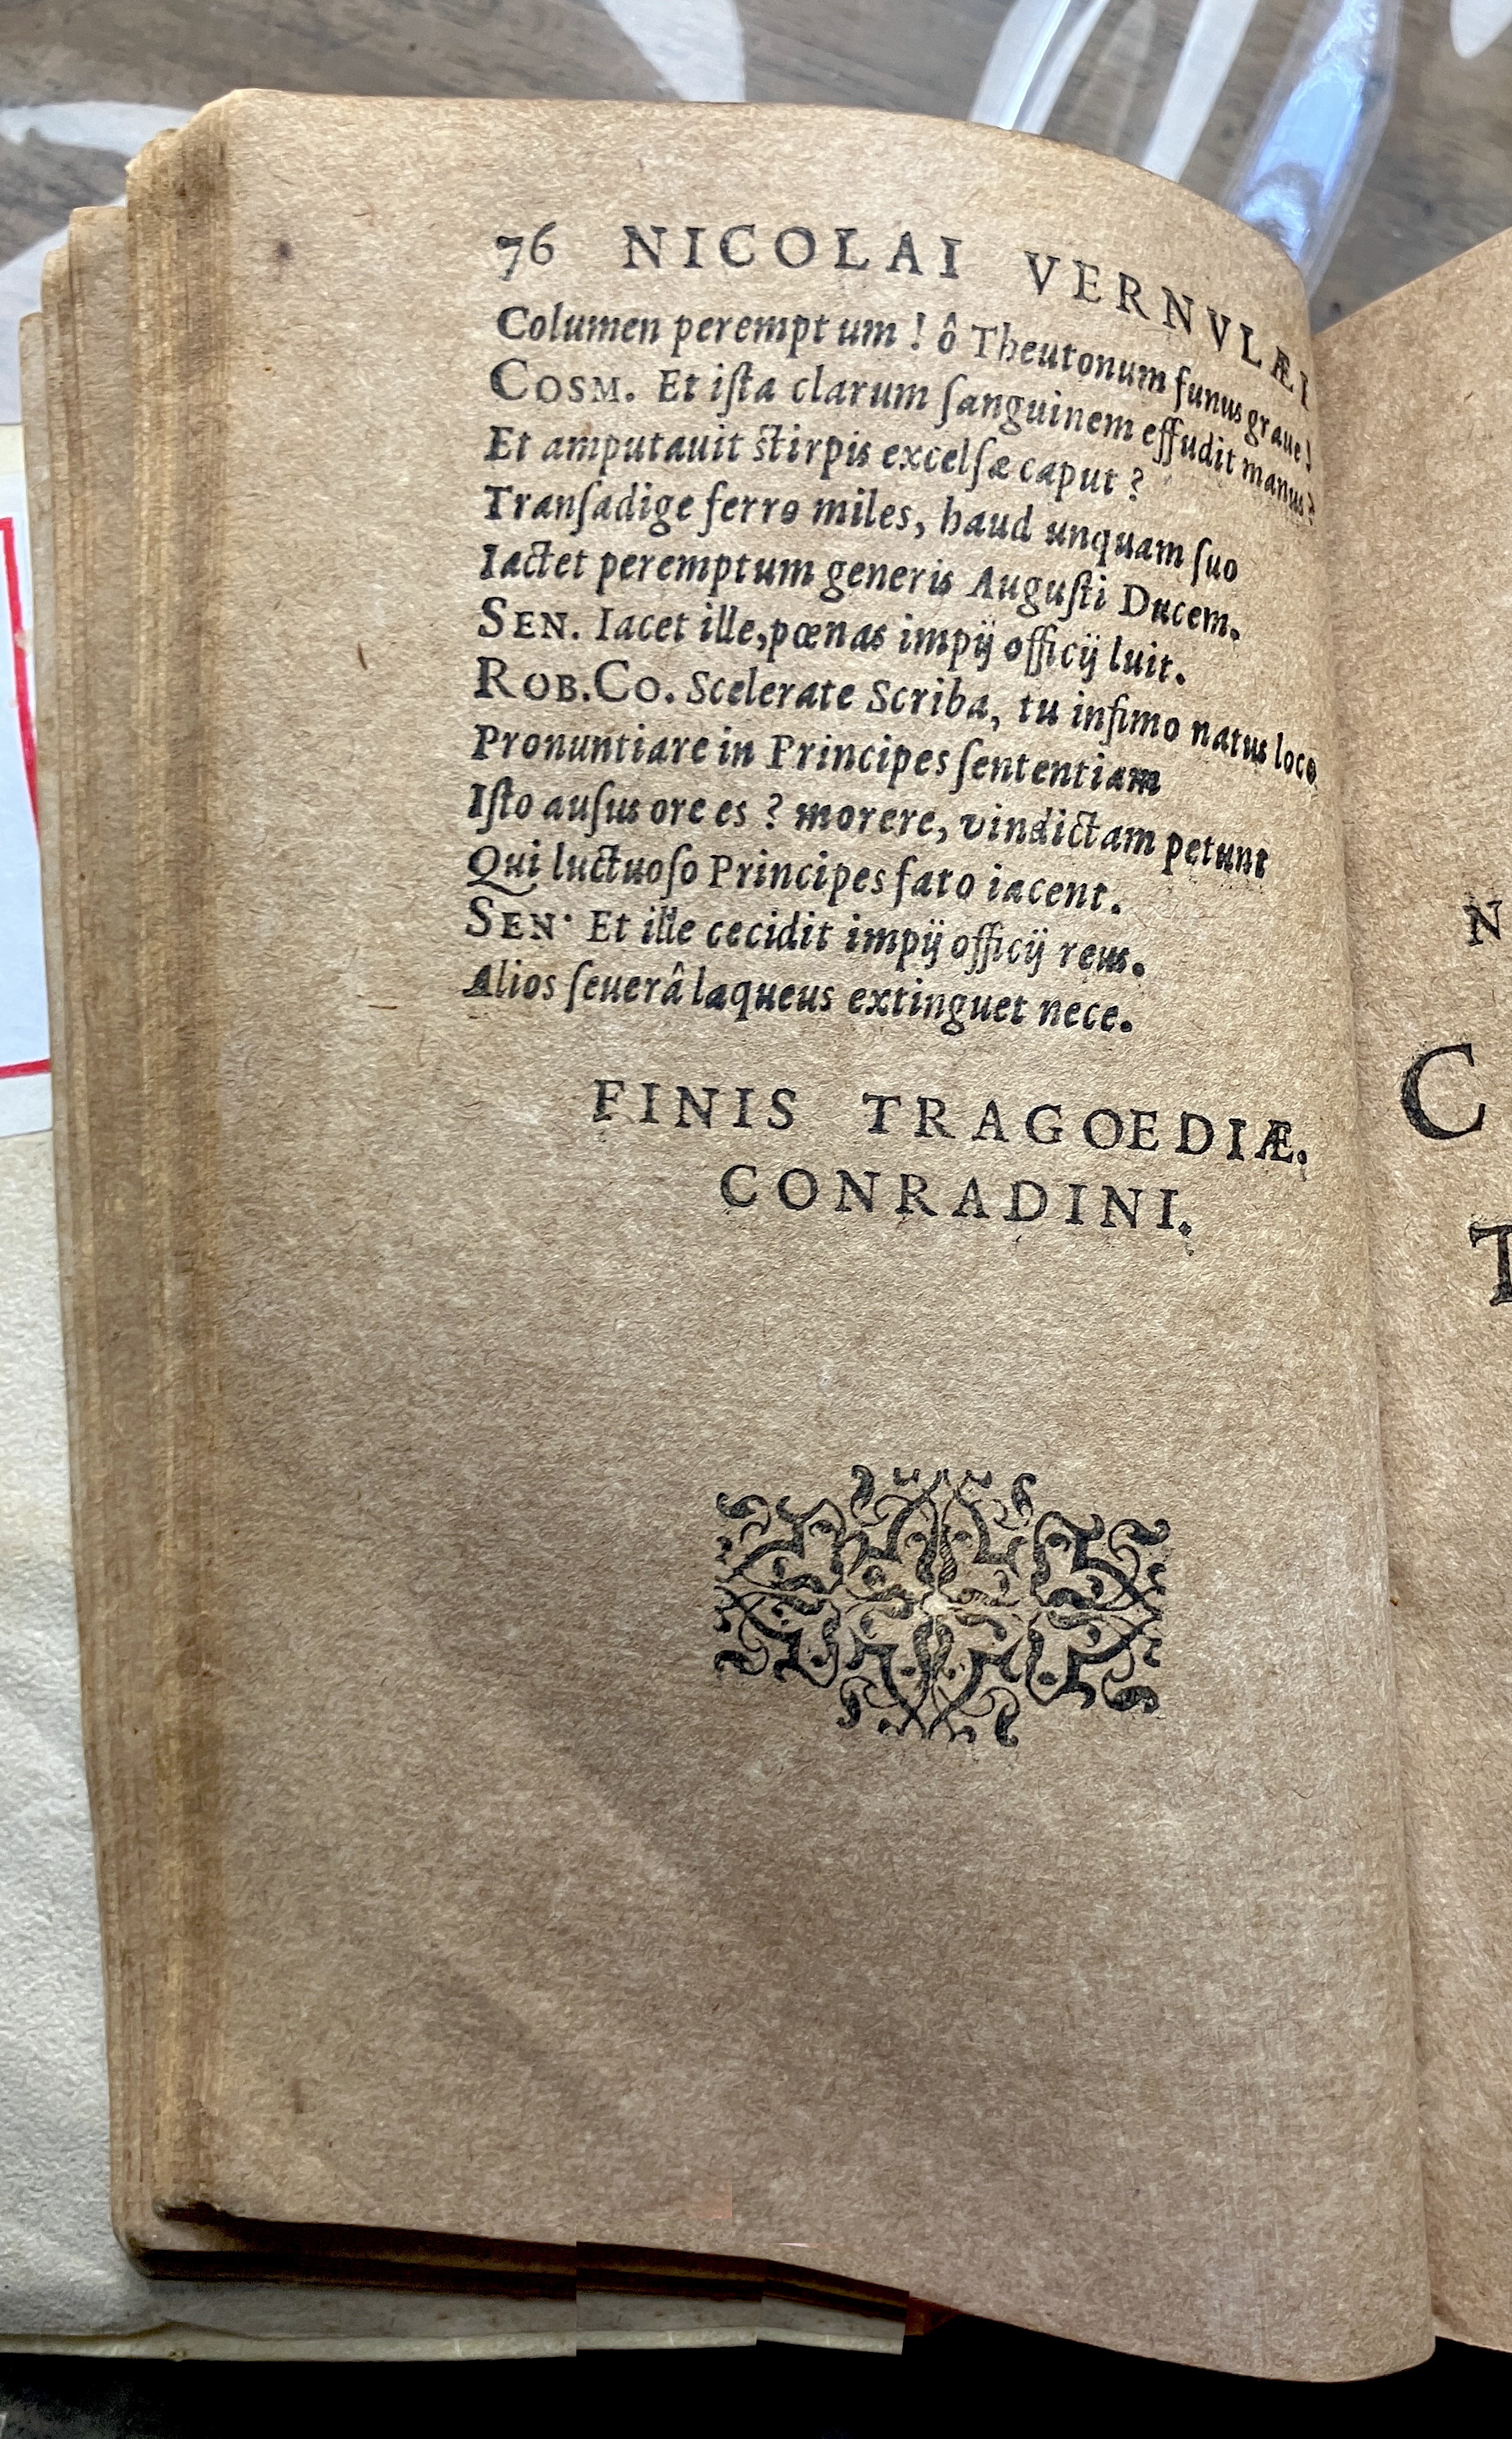 76 NICOLAI VERNVLÆI
Columen perempt um ! ô Theutonum funus graue !
COSM. Et iſta clarum ſanguinem effudit manus ?
Et amputauit ſtirpis excelſæ caput ?
Tranſadige ferro miles, haud unquam ſuo
Iactet peremptum generis Auguſti Ducem.
SEN. Iacet ille, pœnas impij officij luit.
ROB. CO. Scelerate Scriba, tu infimo natus loco
Pronuntiare in Principes ſententiam
Iſto auſus ore es ? morere, vindictam petunt
Qui luctuoſo Principes fato iacent.
SEN. Et ille cecidit impij officij reus.
Alios ſeuerâ laqueus extinguet nece.
FINIS TRAGOEDIÆ.
CONRADINI.
N
C
T